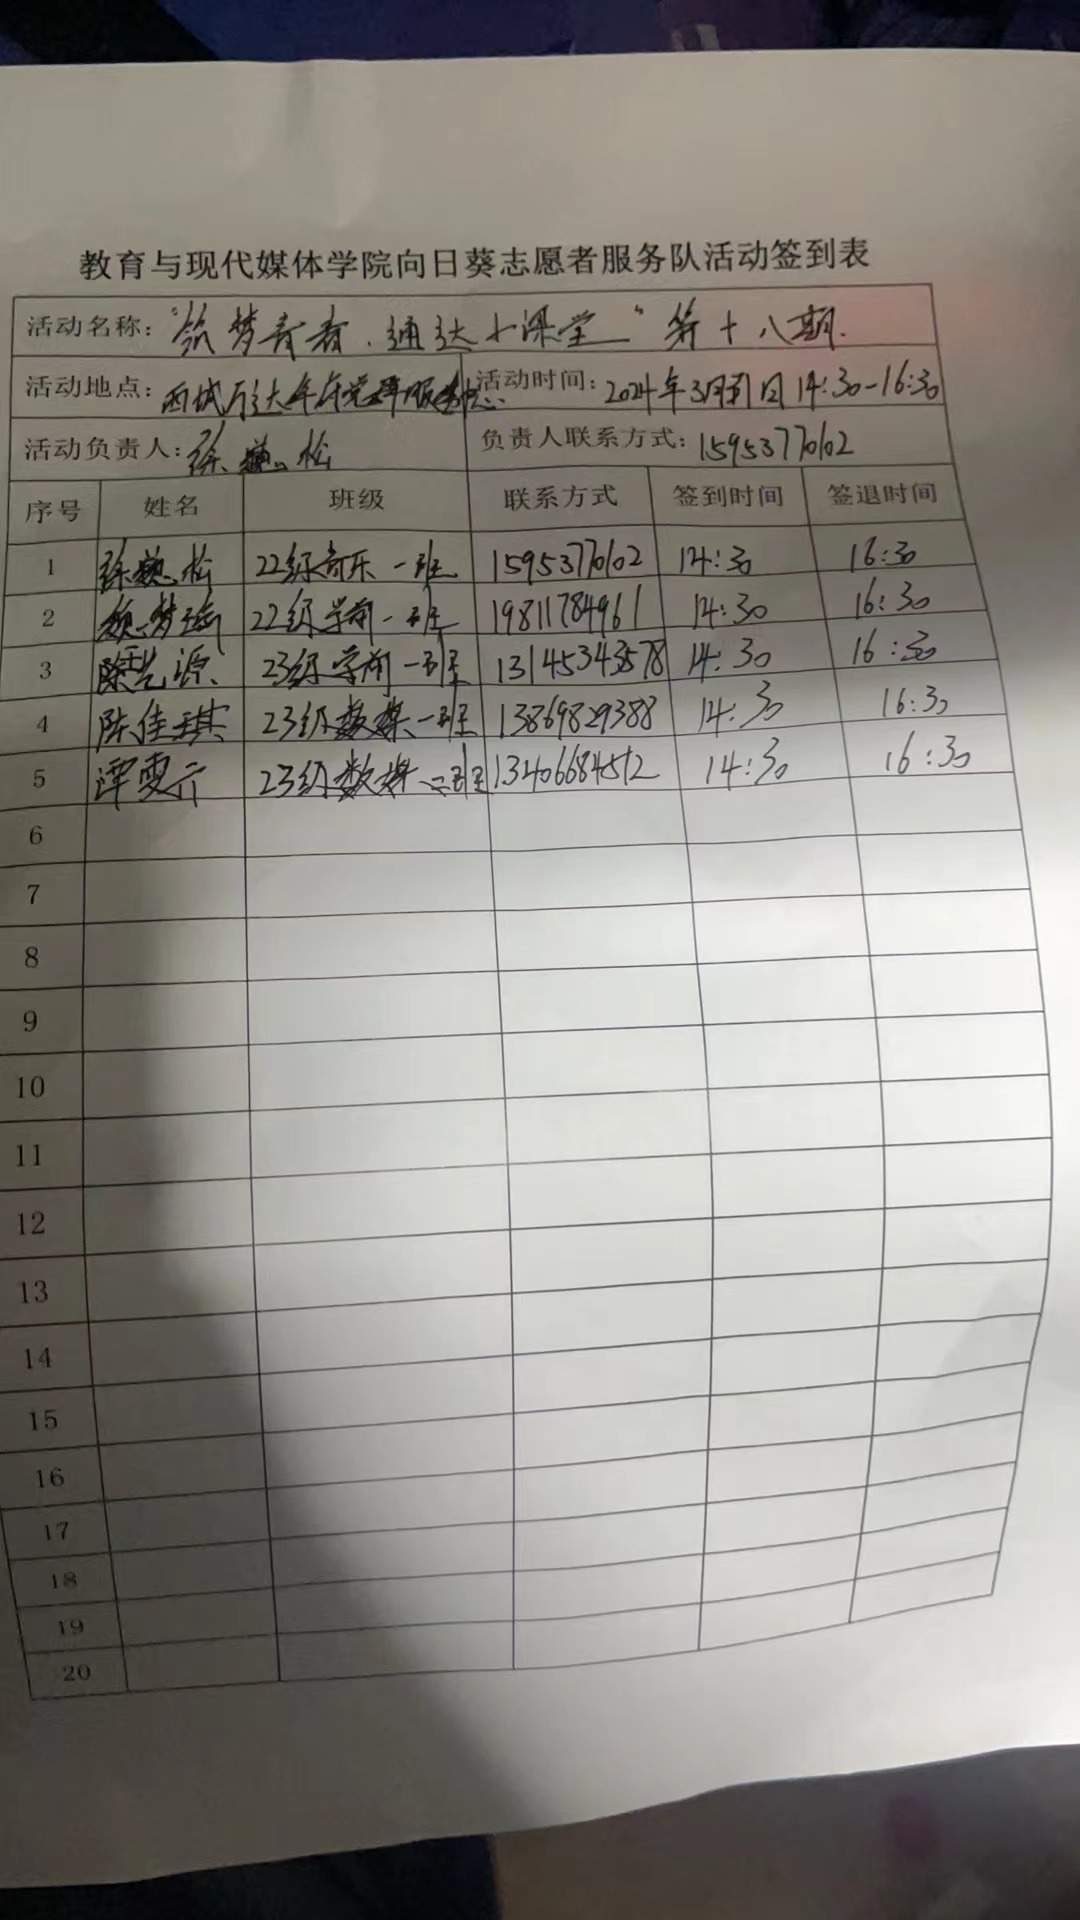 教育与现代媒体学院向日葵志愿者服务队活动签到表
活动名称：“筑梦青春，通达小课堂”第十八期
活动地点：西城万达 活动时间：2024年3月 日14:30-16:30
活动负责人：徐 松 负责人联系方式：15953770102
序号 姓名 班级 联系方式 签到时间 签退时间
1 徐 松 22级音乐一班 15953770102 14:30 16:30
2 颜梦瑶 22级学前一班 19811784961 14:30 16:30
3 陈艺源 23级学前一班 13145343578 14:30 16:30
4 陈佳琪 23级数媒一班 13869829388 14:30 16:30
5 谭雯 23级数媒二班 13406684512 14:30 16:30
6
7
8
9
10
11
12
13
14
15
16
17
18
19
20